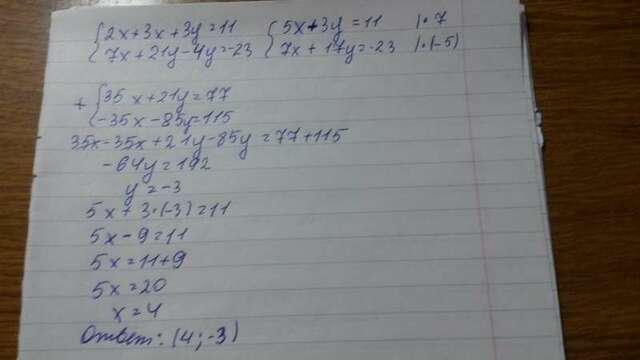 {2x+3x+3y=11 {5x+3y=11 |·7
{7x+21y-4y=-23 {7x+17y=-23 |·(-5)
+ {35x+21y=77
{-35x-85y=115
35x-35x+21y-85y=77+115
-64y=192
y=-3
5x+3·(-3)=11
5x-9=11
5x=11+9
5x=20
x=4
Ответ: (4;-3)